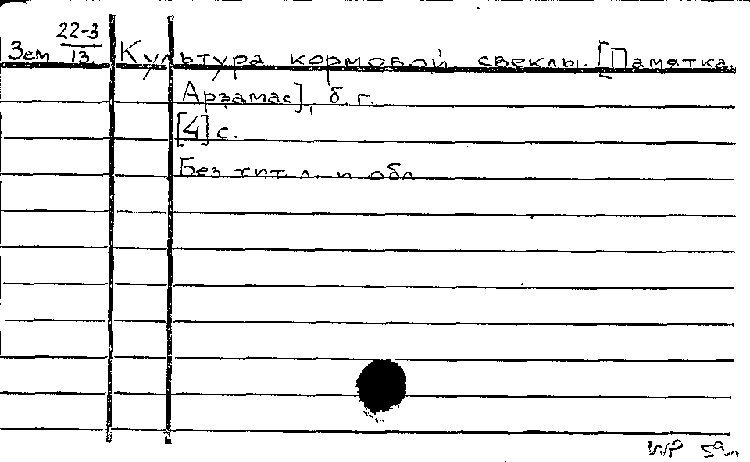 Зем 22-3/13 Культура кормовой свеклы. [Памятка.
Арзамас], б. г.
[4] с.
Без тит. л. и обл.